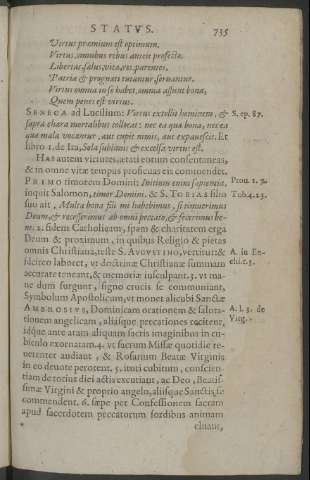 STATVS. 735
Virtus præmium est optimum,
Virtus, omnibus rebus anteit profecto.
Libertas, salus, vita, res, parentes,
Patria & prognati tutantur, servantur.
Virtus omnia in se habet, omnia assunt bona,
Quem penes est virtus.
SENECA ad Lucilium: Virtus extollit hominem, & S. ep. 87.
supra chara mortalibus collocat: nec ea quæ bona, nec ea
quæ mala vocantur, aut cupit nimis, aut expavescit. Et
libro 1. de Ira, Sola sublimis & excelsa virtus est.
HAS autem virtutes, ætati eorum consentaneas,
& in omne vitæ tempus proficuas eis commendet.
PRIMO timorem Domini; Initium enim sapientiæ,
inquit Salomon, timor Domini. & S. TOBIAS filio
suo ait, Multa bona fili mi habebimus, si timuerimus
Deum, & recesserimus ab omni peccato, & fecerimus be-
ne. 2. fidem Catholicam, spem & charitatem erga
Deum & proximum, in quibus Religio & pietas
omnis Christiana, teste S. AVGVSTINO, vertitur: &
idcirco laboret, ut doctrinæ Christianæ summam
accurate teneant, & memoriæ insculpant. 3. vt ma-
ne dum surgunt, signo crucis se communiant,
Symbolum Apostolicum, vt monet alicubi Sanctus
AMBROSIVS, Dominicam orationem & saluta-
tionem angelicam, aliasque precationes recitent,
idque ante aram aliquam sacris imaginibus in cu-
biculo exornatam. 4. vt sacrum Missæ quotidie re-
uerenter audiant, & Rosarium Beatæ Virginis
in eo deuote perorent. 5. ituri cubitum, conscien-
tiam de totius diei actis excutiant, ac Deo, Beatis-
simæ Virgini & proprio angelo, aliisque Sanctis, se
commendent. 6. sæpe per Confessionem sacram
apud sacerdotem peccatorum sordibus animam
eluant,
Prou. 1. 7.
Tob. 4. 23.
A. in En-
chi. c. 3.
A. l. 3. de
Virg.